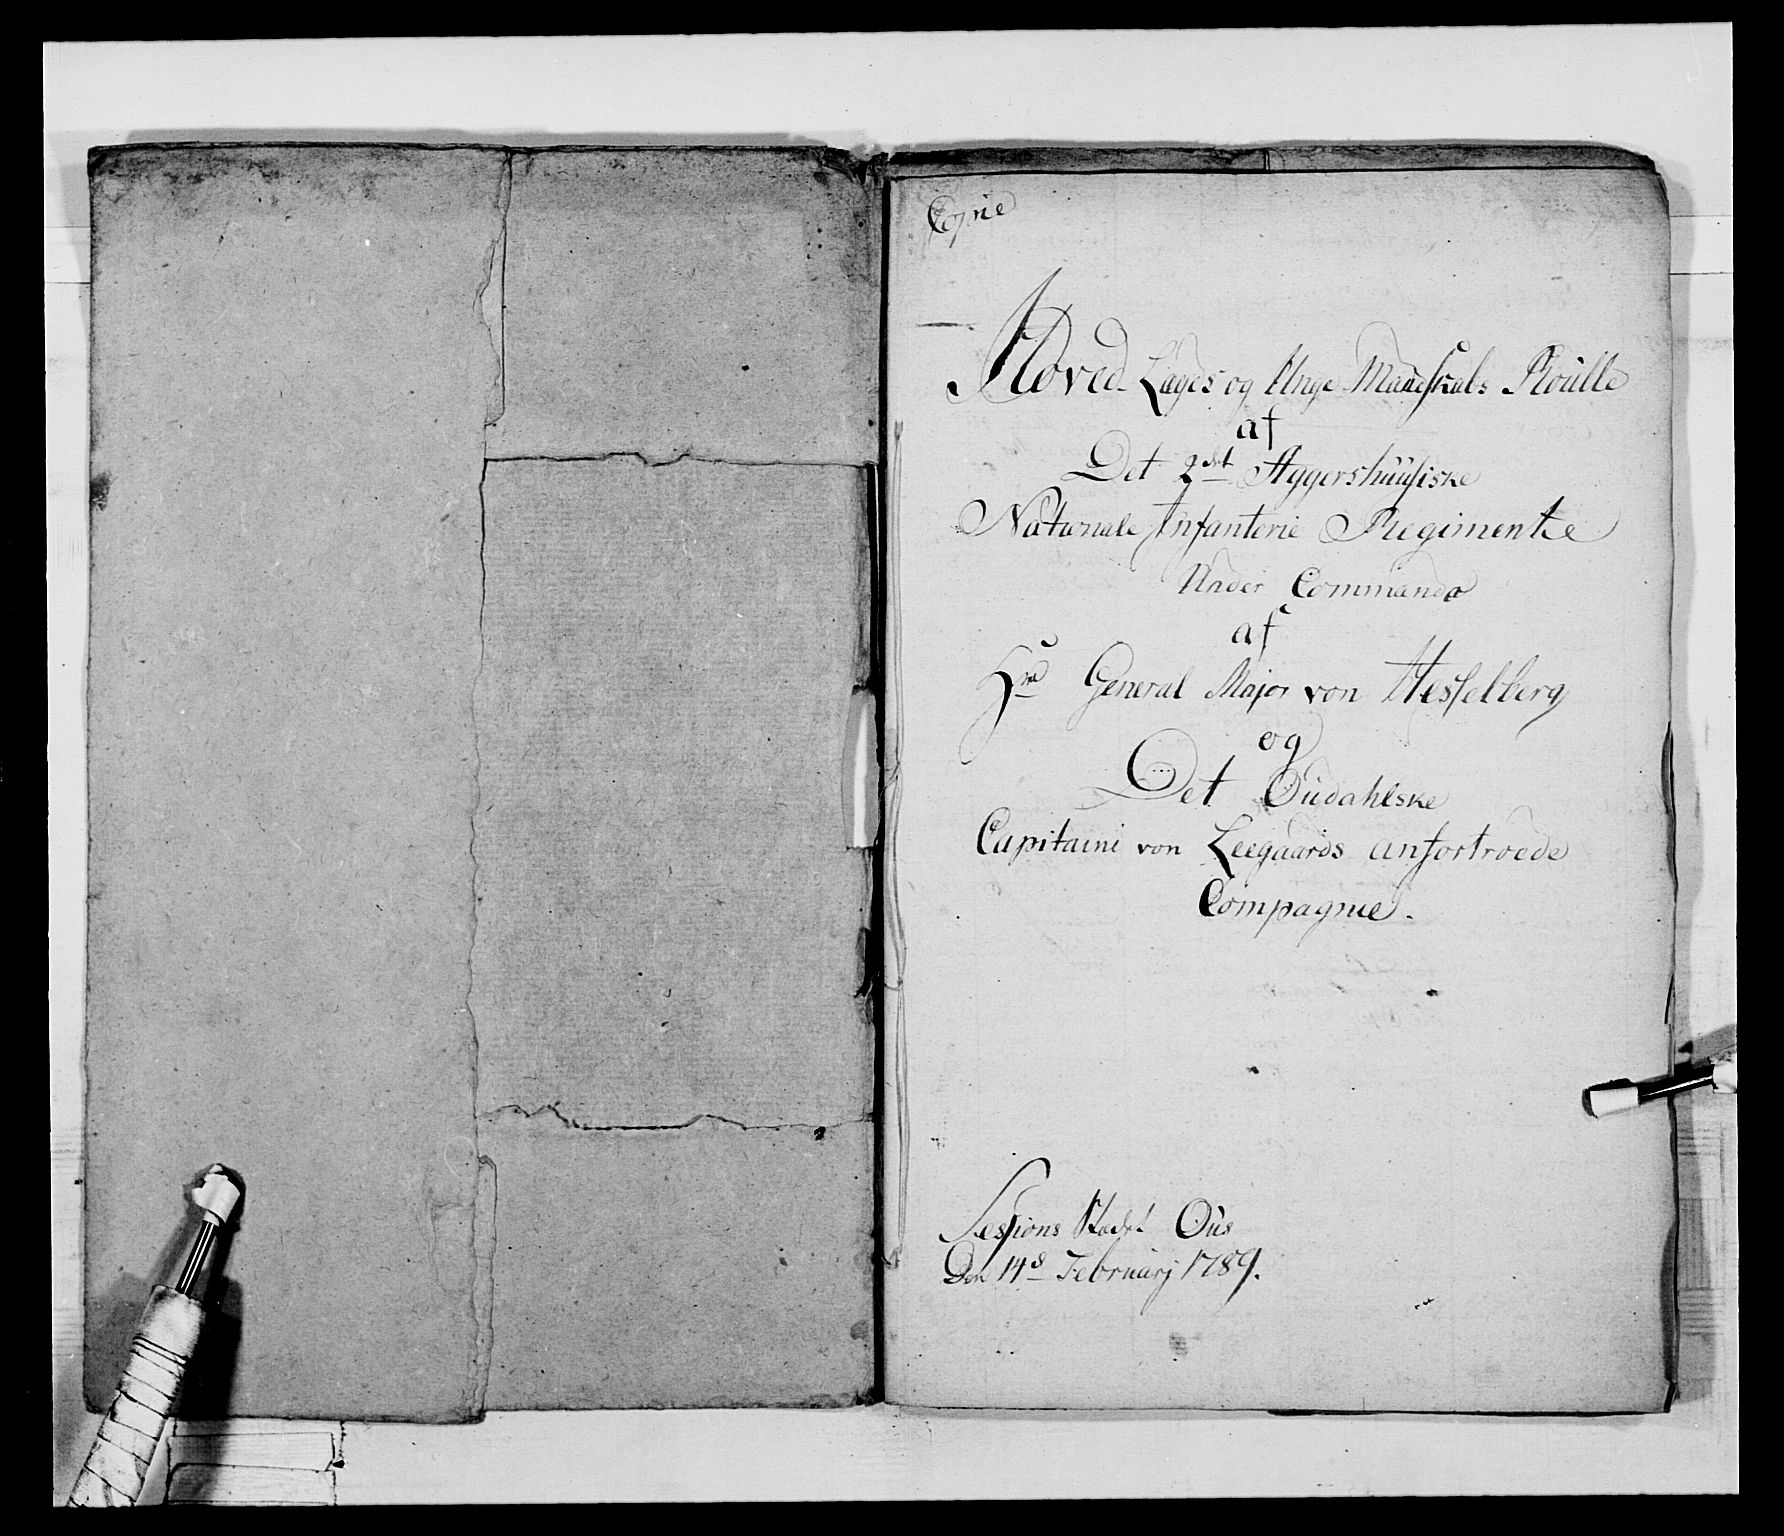 Copie
Hoved Lægds og Unge Mandskabs Roulle
af
Det 2det Aggershuusiske
Nationale Infanterie Regimente
Under Commando
af
Hr General Major von Hesselberg
og
Det Oudahlske
Capitaine von Leegaards anfortroede
Compagnie.
Sessions Stædet Ous
Den 14de Februarj 1789.